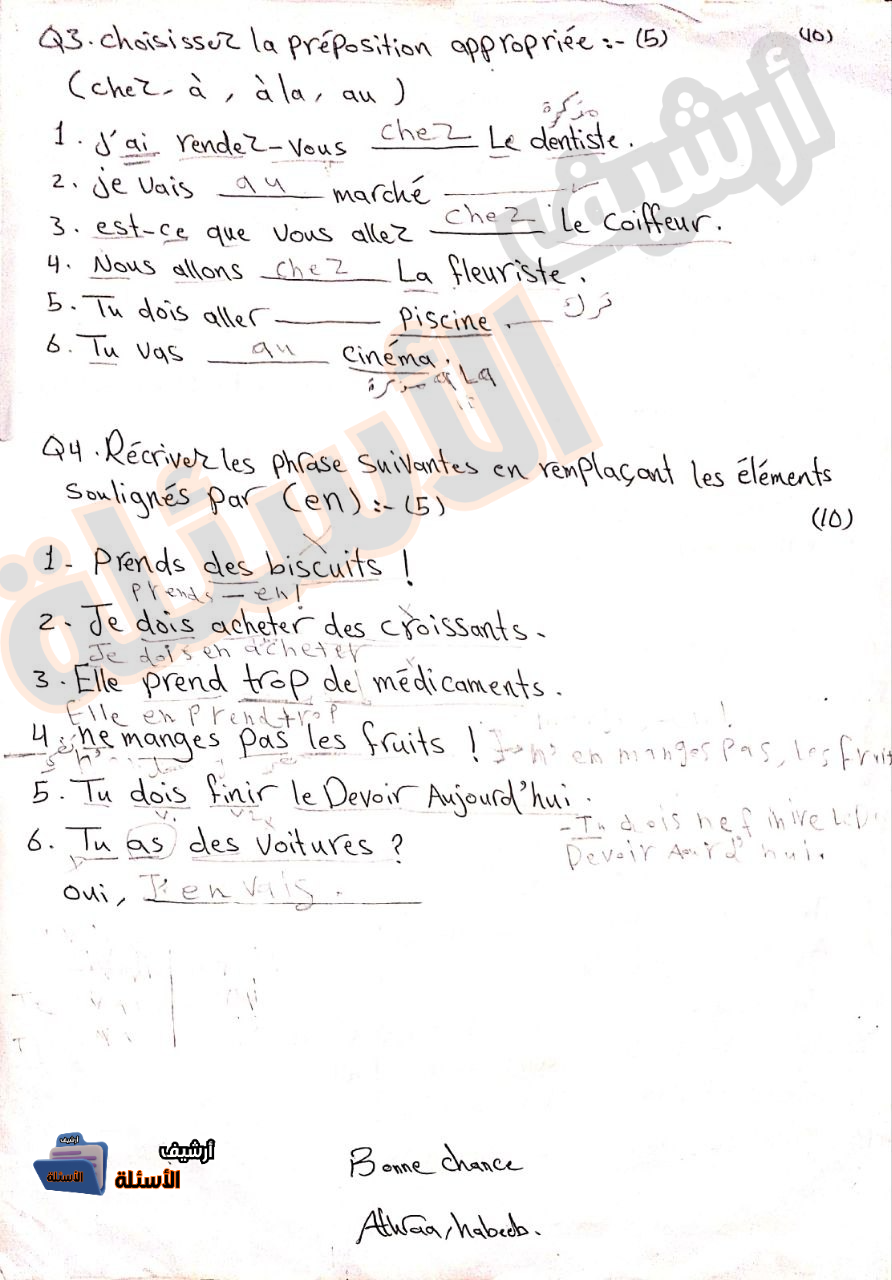 Q3. Choisissez la préposition appropriée :- (5) (10)
(chez - à , à la , au )
مذكرة
1. J'ai rendez-vous chez Le dentiste.
2. je vais au marché
3. est-ce que vous allez chez Le coiffeur.
4. Nous allons chez La fleuriste.
5. Tu dois aller ______ Piscine. ترك
6. Tu vas au cinéma.
مذكرة a La
Q4. Récrivez les phrase suivantes en remplaçant les éléments
soulignés par (en) :- (5)
(10)
1 - Prends des biscuits !
Prends-en!
2. Je dois acheter des croissants.
Je dois en acheter
3. Elle prend trop de médicaments.
Elle en prend trop
4. ne manges pas les fruits !
n'en manges pas, les fruit
5. Tu dois finir le Devoir Aujourd'hui.
- Tu dois
Devoir
6. Tu as des voitures ?
oui, J'en vais.
أرشيف
الأسئلة
أرشيف
الأسئلة
أرشيف
الأسئلة
Bonne chance
habeeb.